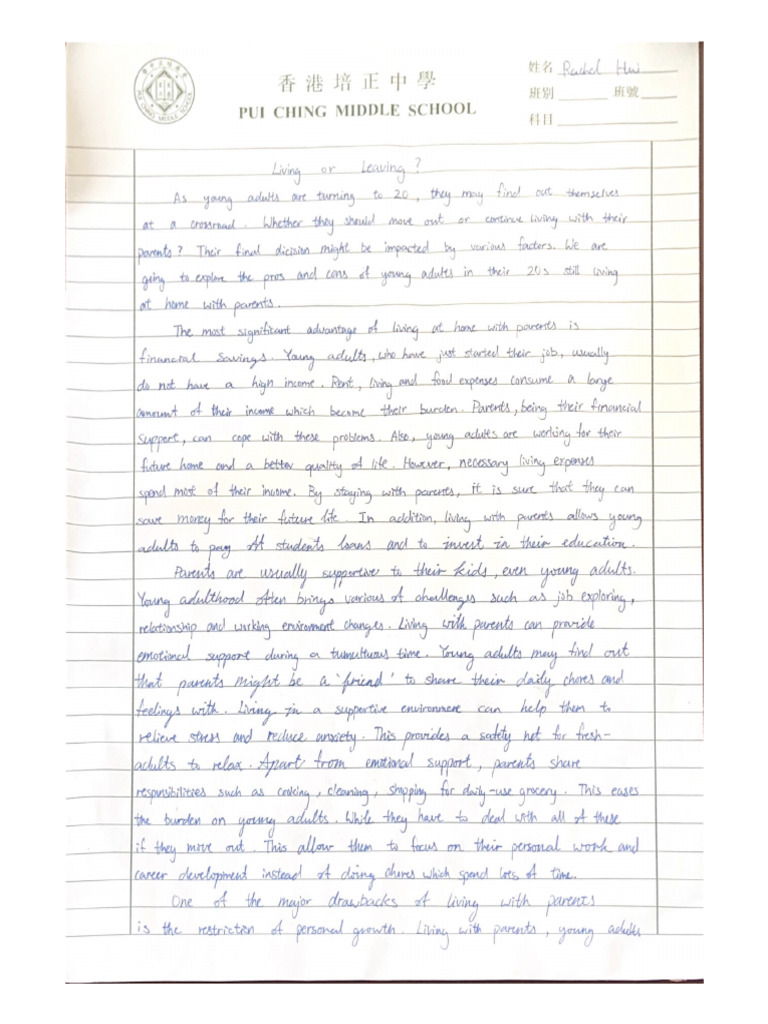 香港培正中學
PUI CHING MIDDLE SCHOOL
姓名 Rachel Hui
班別 班號
科目
PUI CHING MIDDLE SCHOOL
Living or Leaving?
As young adults are turning to 20, they may find out themselves
at a crossroad. Whether they should move out or continue living with their
parents? Their final dicision might be impacted by various factors. We are
going to explore the pros and cons of young adults in their 20s still living
at home with parents.
The most significant advantage of living at home with parents is
financial savings. Young adults, who have just started their job, usually
do not have a high income. Rent, living and food expenses consume a large
amount of their income which become their burden. Parents, being their financial
support, can cope with these problems. Also, young adults are working for their
future home and a better quality of life. However, necessary living expenses
spend most of their income. By staying with parents, it is sure that they can
save money for their future life. In addition, living with parents allows young
adults to pay off students loans and to invest in their education.
Parents are usually supportive to their kids, even young adults.
Young adulthood often brings various of challenges such as job exploring,
relationship and working environment changes. Living with parents can provide
emotional support during a tumultuous time. Young adults may find out
that parents might be a 'friend' to share their daily chores and
feelings with. Living in a supportive environment can help them to
relieve stress and reduce anxiety. This provides a safety net for fresh-
adults to relax. Apart from emotional support, parents share
responsibilities such as cooking, cleaning, shopping for daily-use grocery. This eases
the burden on young adults. While they have to deal with all of these
if they move out. This allow them to focus on their personal work and
career development instead of doing chores which spend lots of time.
One of the major drawbacks of living with parents
is the restriction of personal growth. Living with parents, young adults